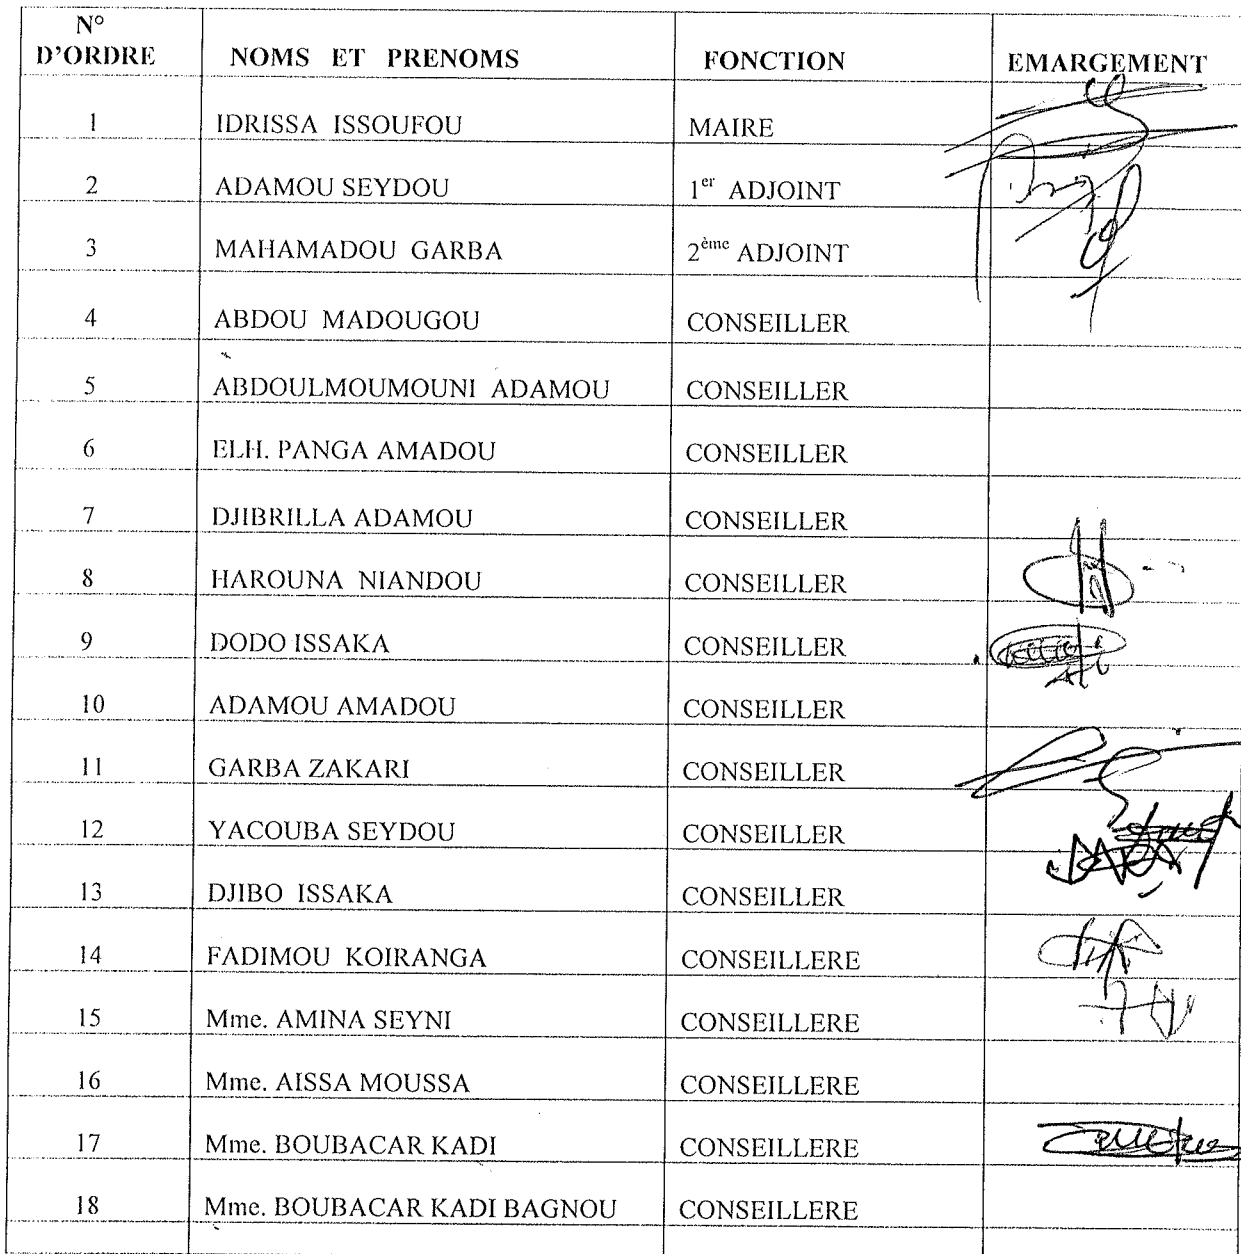 N°
D'ORDRE NOMS ET PRENOMS FONCTION EMARGEMENT
1 IDRISSA ISSOUFOU MAIRE
2 ADAMOU SEYDOU 1er ADJOINT
3 MAHAMADOU GARBA 2ème ADJOINT
4 ABDOU MADOUGOU CONSEILLER
5 ABDOULMOUMOUNI ADAMOU CONSEILLER
6 ELH. PANGA AMADOU CONSEILLER
7 DJIBRILLA ADAMOU CONSEILLER
8 HAROUNA NIANDOU CONSEILLER
9 DODO ISSAKA CONSEILLER
10 ADAMOU AMADOU CONSEILLER
11 GARBA ZAKARI CONSEILLER
12 YACOUBA SEYDOU CONSEILLER
13 DJIBO ISSAKA CONSEILLER
14 FADIMOU KOIRANGA CONSEILLERE
15 Mme. AMINA SEYNI CONSEILLERE
16 Mme. AISSA MOUSSA CONSEILLERE
17 Mme. BOUBACAR KADI CONSEILLERE
18 Mme. BOUBACAR KADI BAGNOU CONSEILLERE